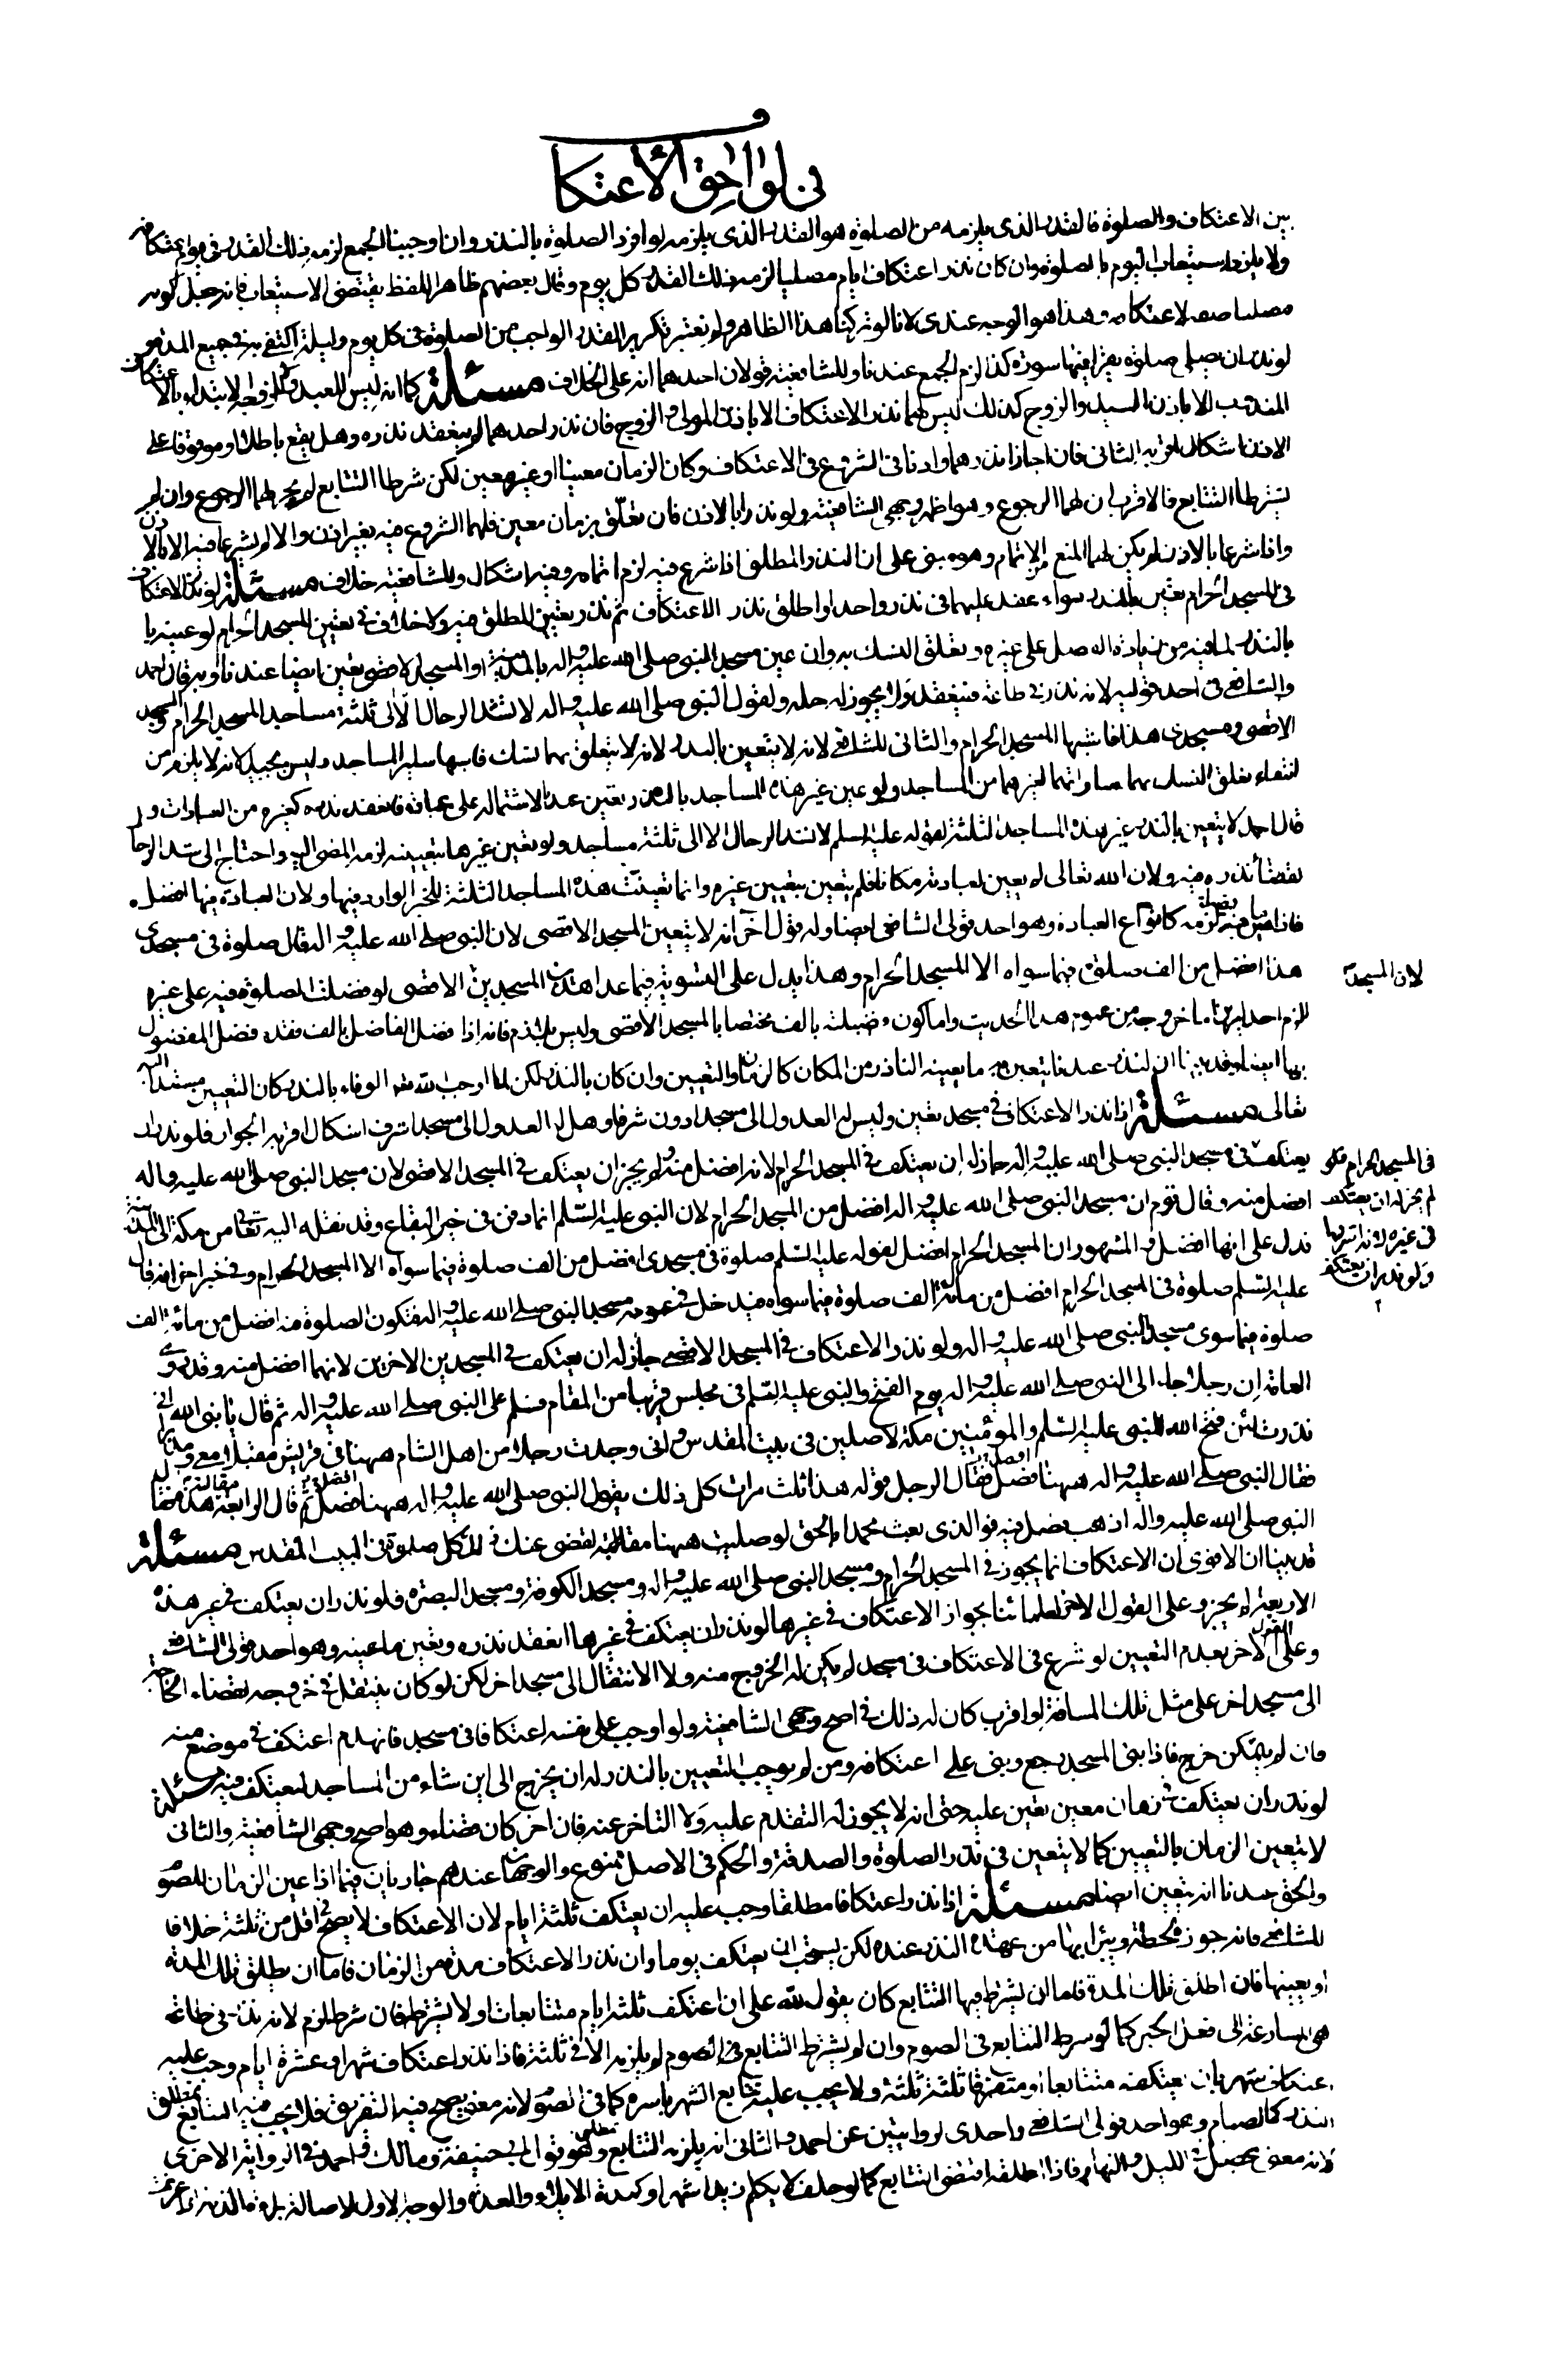 في لواحق الاعتكاف
بين الاعتكاف والصلوة فالقدر الذى يلزمه من الصلوة هو القدر الذى يلزمه لو افرد الصلوة بالنذر وان اوجبنا الجمع لزمه ذلك القدر فى يوم اعتكافه
ولا يلزمه استيعاب اليوم بالصلوة وان كان نذر اعتكاف ايام مصليا لزمه ذلك القدر كل يوم وقال بعضهم ظاهر اللفظ يقتضى الاستيعاب فانه جعل كونه
مصليا صفة لاعتكافه وهذا هو الوجه عندى لانا لو تركنا هذا الظاهر ولم نعتبر تكرير القدر الواجب من الصلوة فى كل يوم وليلة اكتفى به فى جميع المدة و
لو نذر ان يصلى صلوة يقرأ فيها سورة كذا لزم الجمع عندنا وللشافعية قولان احدهما انه على الخلاف مسئلة كما انه ليس للعبد و الزوجة الابتداء بالاعتكاف
المندوب الا باذن السيد والزوج كذلك ليس لهما نذر الاعتكاف الا باذن المولى والزوج فان نذر احدهما لم ينعقد نذره وهل يقع باطلا او موقوفا على
الاذن اشكال اقربه الثانى فان اجازا نذرهما واذنا فى الشروع فى الاعتكاف وكان الزمان معينا او غير معين لكن شرطا التتابع لم يجز لهما الرجوع وان لم
يشترطا التتابع فالاقرب ان لهما الرجوع وهو اظهر وجهى الشافعية ولو نذرا بالاذن فان تعلق بزمان معين فلهما الشروع فيه بغير اذن والا لم يشرعا فيه الا بالاذن
واذا شرعا بالاذن لم يكن لهما المنع من الاتمام وهو مبنى على ان النذر المطلق اذا شرع فيه لزم اتمامه وفيه اشكال وللشافعية خلاف مسئلة لو نذر الاعتكاف
فى المسجد الحرام تعين بالنذر سواء عقد عليهما فى نذر واحد او اطلق نذر الاعتكاف ثم نذر تعيين المطلق فيه ولا خلاف فى تعيين المسجد الحرام لو عينه
بالنذر لما فيه من زيادة الفضل على غيره و تعلق النسك به وان عين مسجد النبى صلى الله عليه واله بالمدينة او المسجد الاقصى تعين ايضا عندنا وبه قال احمد
والشافعى فى احد قوليه لانه نذر فى طاعة فينعقد ولا يجوز له حله ولقول النبى صلى الله عليه واله لا تشد الرحال الا الى ثلثة مساجد المسجد الحرام والمسجد
الاقصى ومسجدى هذا فاشبها المسجد الحرام والثانى للشافعى لانه لا يتعين بالنذر لانه لا يتعلق بهما نسك فاشبها ساير المساجد وليس بجيد لانه لا يلزم من
انتفاء تعلق النسك بهما مساواتهما لغيرهما من المساجد ولو عين غير هذه المساجد بالنذر تعين عندنا لاشتماله على عبادة فانعقد نذره كغيره من العبادات و
قال احمد لا يتعين بالنذر غير هذه المساجد الثلثة لقوله عليه السلم لا تشد الرحال الا الى ثلثة مساجد ولو تعين غيرها بتعيينه لزمه المضى اليه واحتاج الى شد الرحال
لقضاء نذره فيه ولان الله تعالى لم يعين لعبادته مكانا فلم يتعين بتعيين غيره وانما تعينت هذه المساجد الثلثة للخبر الوارد فيها ولان العبادة فيها افضل
فاذا عين ما فيه فضيلة لزمه كانواع العبادة وهو احد قولى الشافعى ايضا وله قول اخر انه لا يتعين المسجد الاقصى لان النبى صلى الله عليه واله قال صلوة فى مسجدى
هذا افضل من الف صلوة فيما سواه الا المسجد الحرام وهذا يدل على التسوية فيما عدا هذين المسجدين لان المسجد الاقصى لو فضلت الصلوة فيه على غيره
للزم احد امرين اما خروجه من عموم هذا الحديث واما كون فضيلته بالف مختصا بالمسجد الاقصى وليس بلازم فانه اذا فضل الفاضل بالف فقد فضل المفضول
بها ايضا وقد بينا ان النذر عندنا يتعين به ما يعينه الناذر من المكان كالزمان والتعيين وان كان بالنذر لكن لما اوجب الله تعالى الوفاء بالنذر كان التعيين مستندا اليه
تعالى مسئلة اذا نذر الاعتكاف فى مسجد تعين وليس له العدول الى مسجد ادون شرفا وهل له العدول الى مسجد اشرف اشكال اقربه الجواز فلو نذر ان
يعتكف فى المسجد الحرام لم يجز له ان يعتكف فى غيره لانه اشرفها ولو نذر ان يعتكف فى مسجد النبى صلى الله عليه واله جاز له ان يعتكف فى المسجد الحرام لانه افضل منه ولم يجز ان يعتكف فى المسجد الاقصى لان مسجد النبى صلى الله عليه واله
افضل منه وقال قوم ان مسجد النبى صلى الله عليه واله افضل من المسجد الحرام لان النبى عليه السلم انما دفن فى خير البقاع وقد نقله الله تعالى من مكة الى المدينة
فدل على انها افضل والمشهور ان المسجد الحرام افضل لقوله عليه السلم صلوة فى مسجدى افضل من الف صلوة فيما سواه الا المسجد الحرام وفى خبر اخر انه قال
عليه السلم صلوة فى المسجد الحرام افضل من مائة الف صلوة فيما سواه فيدخل فى عمومه مسجد النبى صلى الله عليه واله فتكون الصلوة فيه افضل من مائة الف
صلوة فيما سوى مسجد النبى صلى الله عليه واله ولو نذر الاعتكاف فى المسجد الاقصى جاز له ان يعتكف فى المسجدين الاخرين لانهما افضل منه وقد روى
العامة ان رجلا جاء الى النبى صلى الله عليه واله يوم الفتح والنبى عليه السلم فى مجلس قريبا من المقام فسلم على النبى صلى الله عليه واله ثم قال يا نبى الله انى
نذرت لئن فتح الله للنبى عليه السلم والمؤمنين مكة لاصلين فى بيت المقدس وانى وجدت رجلا من اهل الشام ههنا فى قريش مقبلا معى ومدبرا
فقال النبى صلى الله عليه واله ههنا افضل فصل فقال الرجل قوله هذا ثلث مرات كل ذلك يقول النبى صلى الله عليه واله ههنا افضل فصل ثم قال الرابعة مقالته هذه فقال
النبى صلى الله عليه واله اذهب فصل فيه فوالذى بعث محمدا بالحق لو صليت ههنا لقضى عنك ذلك كل صلوة فى البيت المقدس مسئلة
قد بينا ان الاقوى ان الاعتكاف انما يجوز فى المسجد الحرام ومسجد النبى صلى الله عليه واله ومسجد الكوفة ومسجد البصرة فلو نذر ان يعتكف فى غير هذه
الاربعة لم يجز وعلى القول الاخر لعلمائنا بجواز الاعتكاف فى غيرها لو نذر ان يعتكف فى غيرها انعقد نذره وتعين ما عينه وهو احد قولى الشافعى
وعلى القول الاخر بعدم التعيين لو شرع فى الاعتكاف فى مسجد لم يكن له الخروج منه ولا الانتقال الى مسجد اخر لكن لو كان ينتقل فى خروجه لقضاء الحاجة
الى مسجد اخر على مثل تلك المسافة او اقرب كان له ذلك فى اصح وجهى الشافعية ولو اوجب على نفسه اعتكافا فى مسجد فانهدم اعتكف فى موضع منه
فان لم يتمكن خرج فاذا بنى المسجد رجع وبنى على اعتكافه ومن لم يوجب التعيين بالنذر له ان يخرج الى اين شاء من المساجد ليعتكف فيه مسئلة
لو نذر ان يعتكف فى زمان معين تعين عليه حتى انه لا يجوز له التقدم عليه ولا التاخر عنه فان اخر كان قضاء وهو اصح وجهى الشافعية والثانى
لا يتعين الزمان بالتعيين كما لا يتعين فى نذر الصلوة والصدقة والحكم فى الاصل ممنوع والوجهان عندهم جاريان فيما اذا عين الزمان للصوم
والحق عندنا انه يتعين ايضا مسئلة اذا نذر اعتكافا مطلقا وجب عليه ان يعتكف ثلثة ايام لان الاعتكاف لا يصح فى اقل من ثلثة خلافا
للشافعى فانه جوز لحظة ويبرأ بها من عهدة النذر عنده لكن يستحب ان يعتكف يوما وان نذر الاعتكاف مدة من الزمان فاما ان يطلق تلك المدة
او يعينها فان اطلق تلك المدة فاما ان يشترط فيها التتابع كان يقول لله على ان اعتكف ثلثة ايام متتابعات او لا يشترط فان شرط لزم لانه نذر فى طاعة
هى المسارعة الى فعل الخير كما لو شرط التتابع فى الصوم وان لم يشترط التتابع فى الصوم لم يلزمه الا فى ثلثة فاذا نذر اعتكاف شهر او عشرة ايام وجب عليه
اعتكاف شهر بان يعتكفه متتابعا او متفرقا ثلثة ثلثة ولا يجب عليه تتابع الشهر باسره كما فى الصوم لانه معنى يصح فيه التفريق فلا يجب فيه التتابع بمطلق
النذر كالصيام وهو احد قولى الشافعى واحدى الروايتين عن احمد والثانى انه يلزمه التتابع وهو قول ابى حنيفة ومالك واحمد فى الرواية الاخرى
لانه معنى يحصل فى الليل والنهار فاذا اطلقه اقتضى التتابع كما لو حلف لا يكلم زيدا شهرا وكمدة الايلاء والعدة والوجه الاول لاصالة براءة الذمة
لان المسجد
فى المسجد الحرام
لم يجز له ان يعتكف
فى غيره لانه اشرفها
ولو نذر ان يعتكف